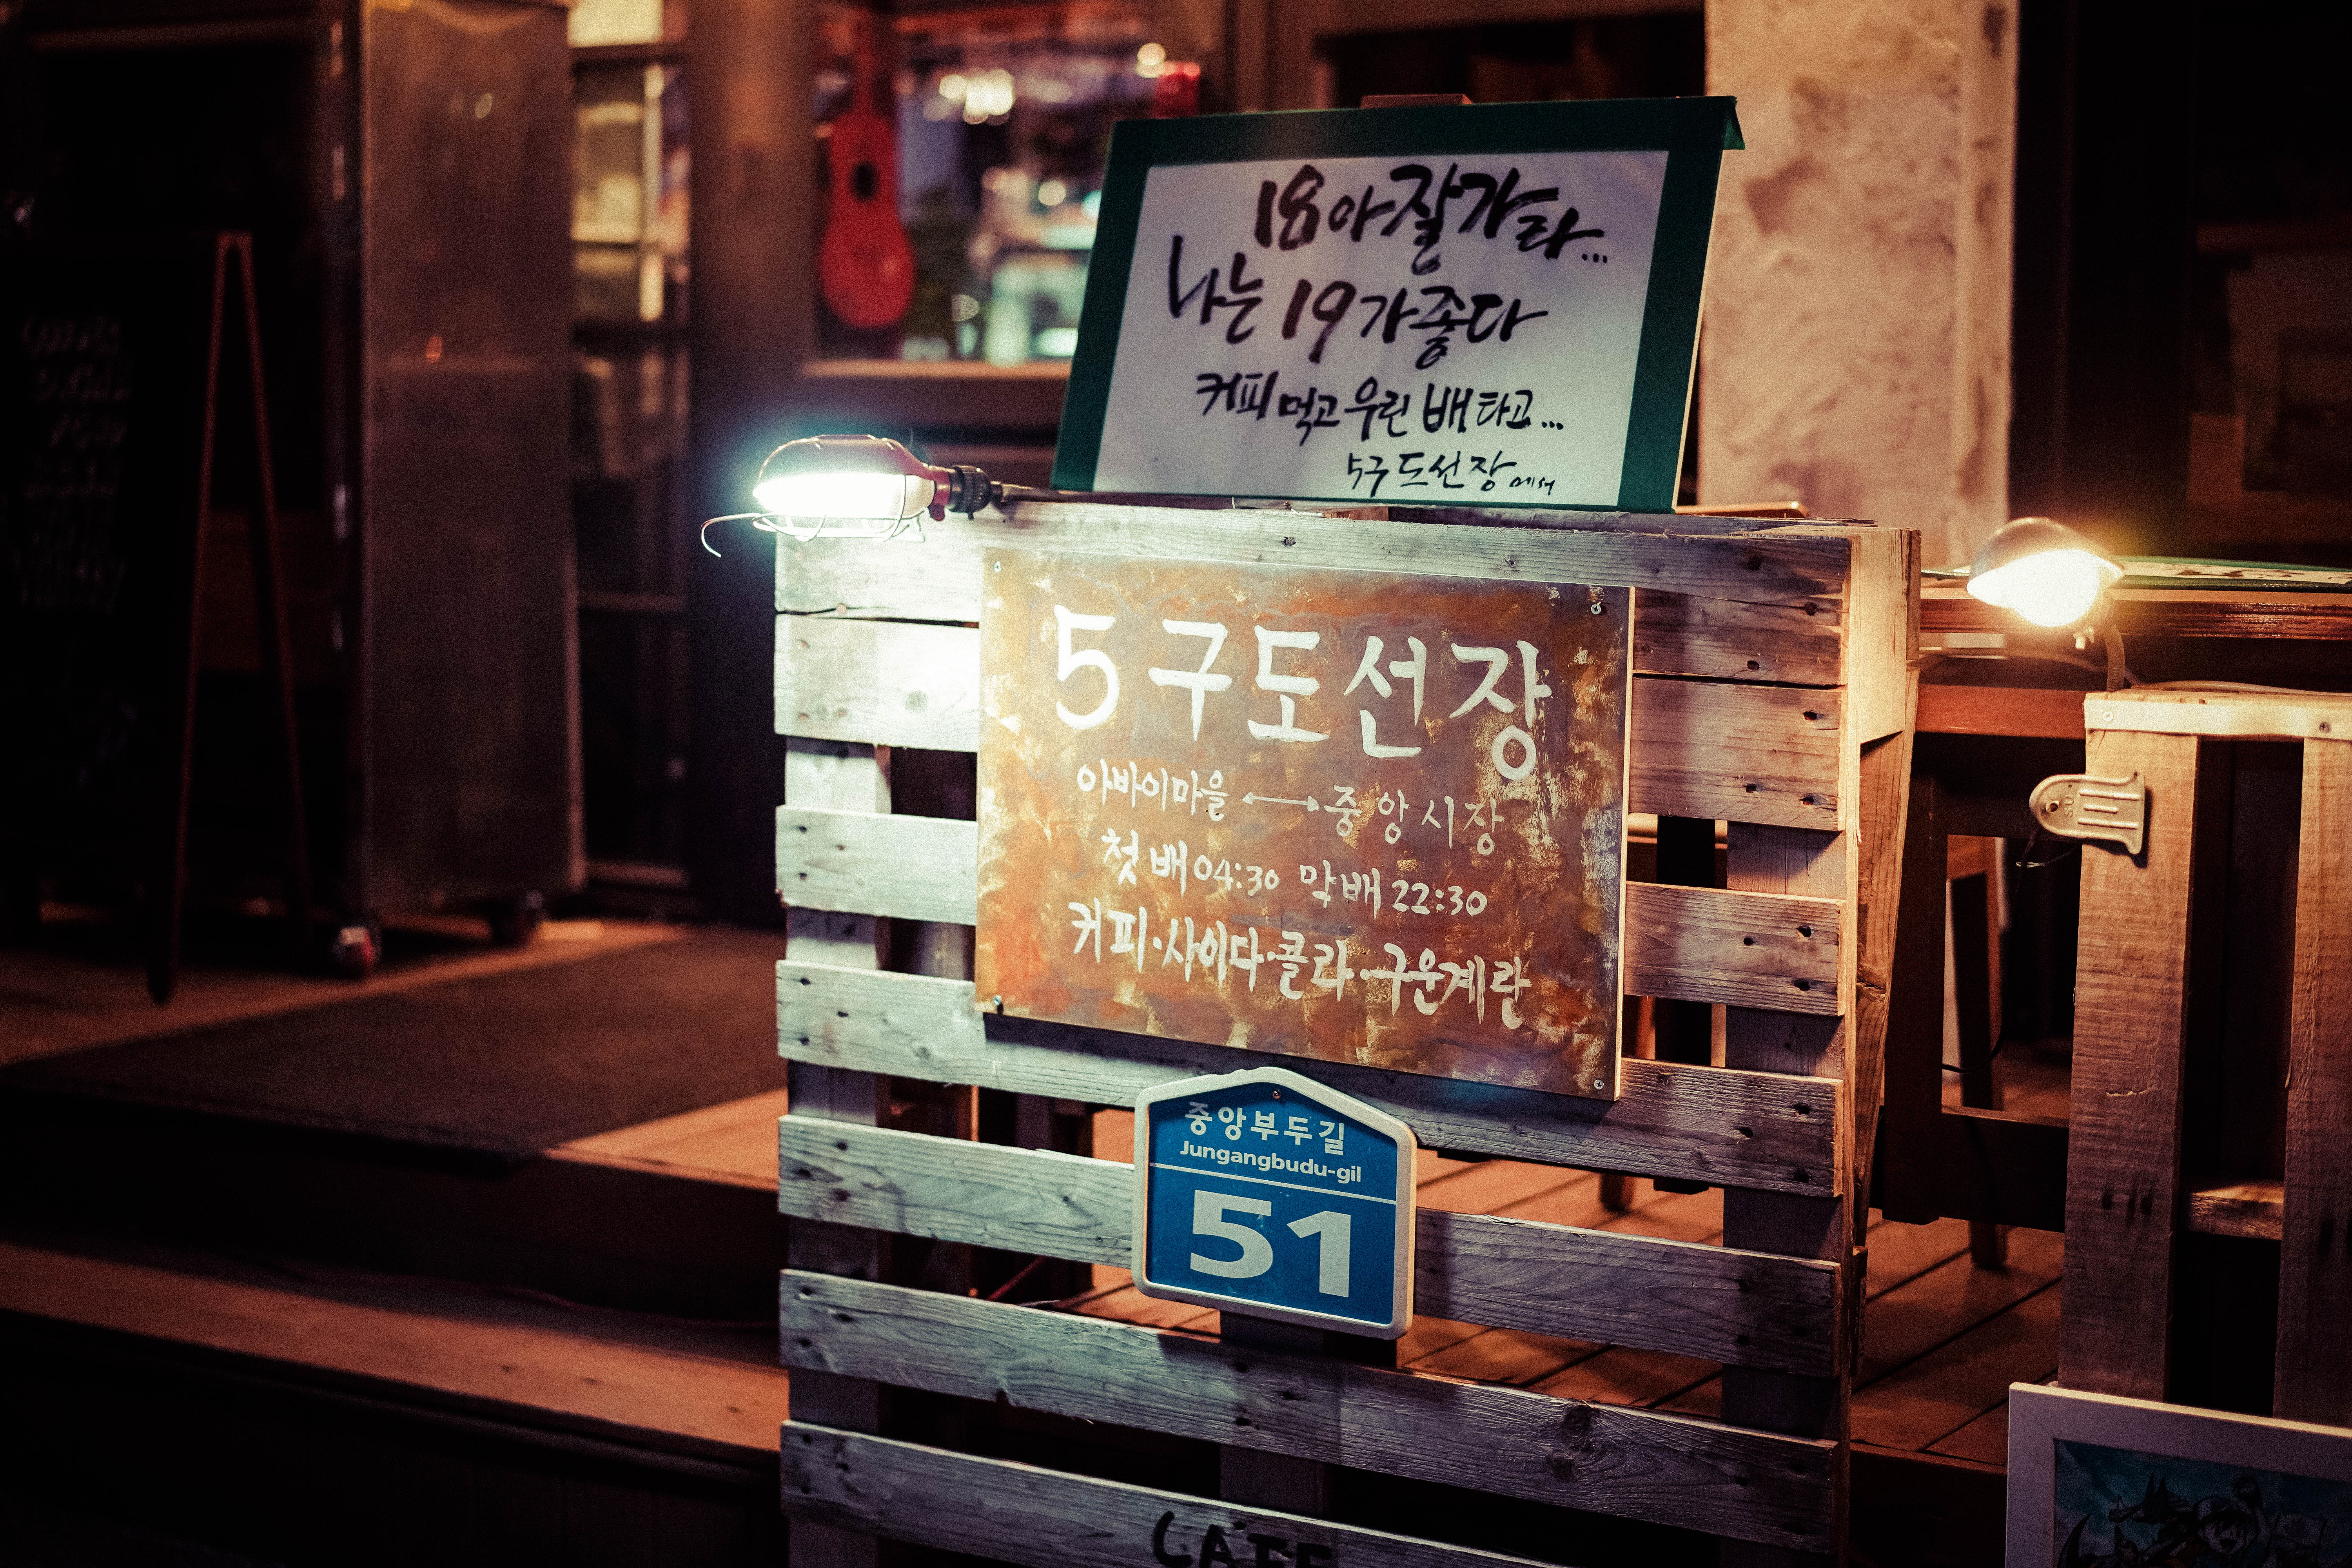 18아 잘가라...
나는 19가 좋다
커피 먹고 우린 배 타고...
5구 도선장에서
5구도선장
아바이마을 ↔ 중앙시장
첫배 04:30 막배 22:30
커피·사이다·콜라·구운계란
중앙부두길
Jungangbudu-gil
51
CAFE